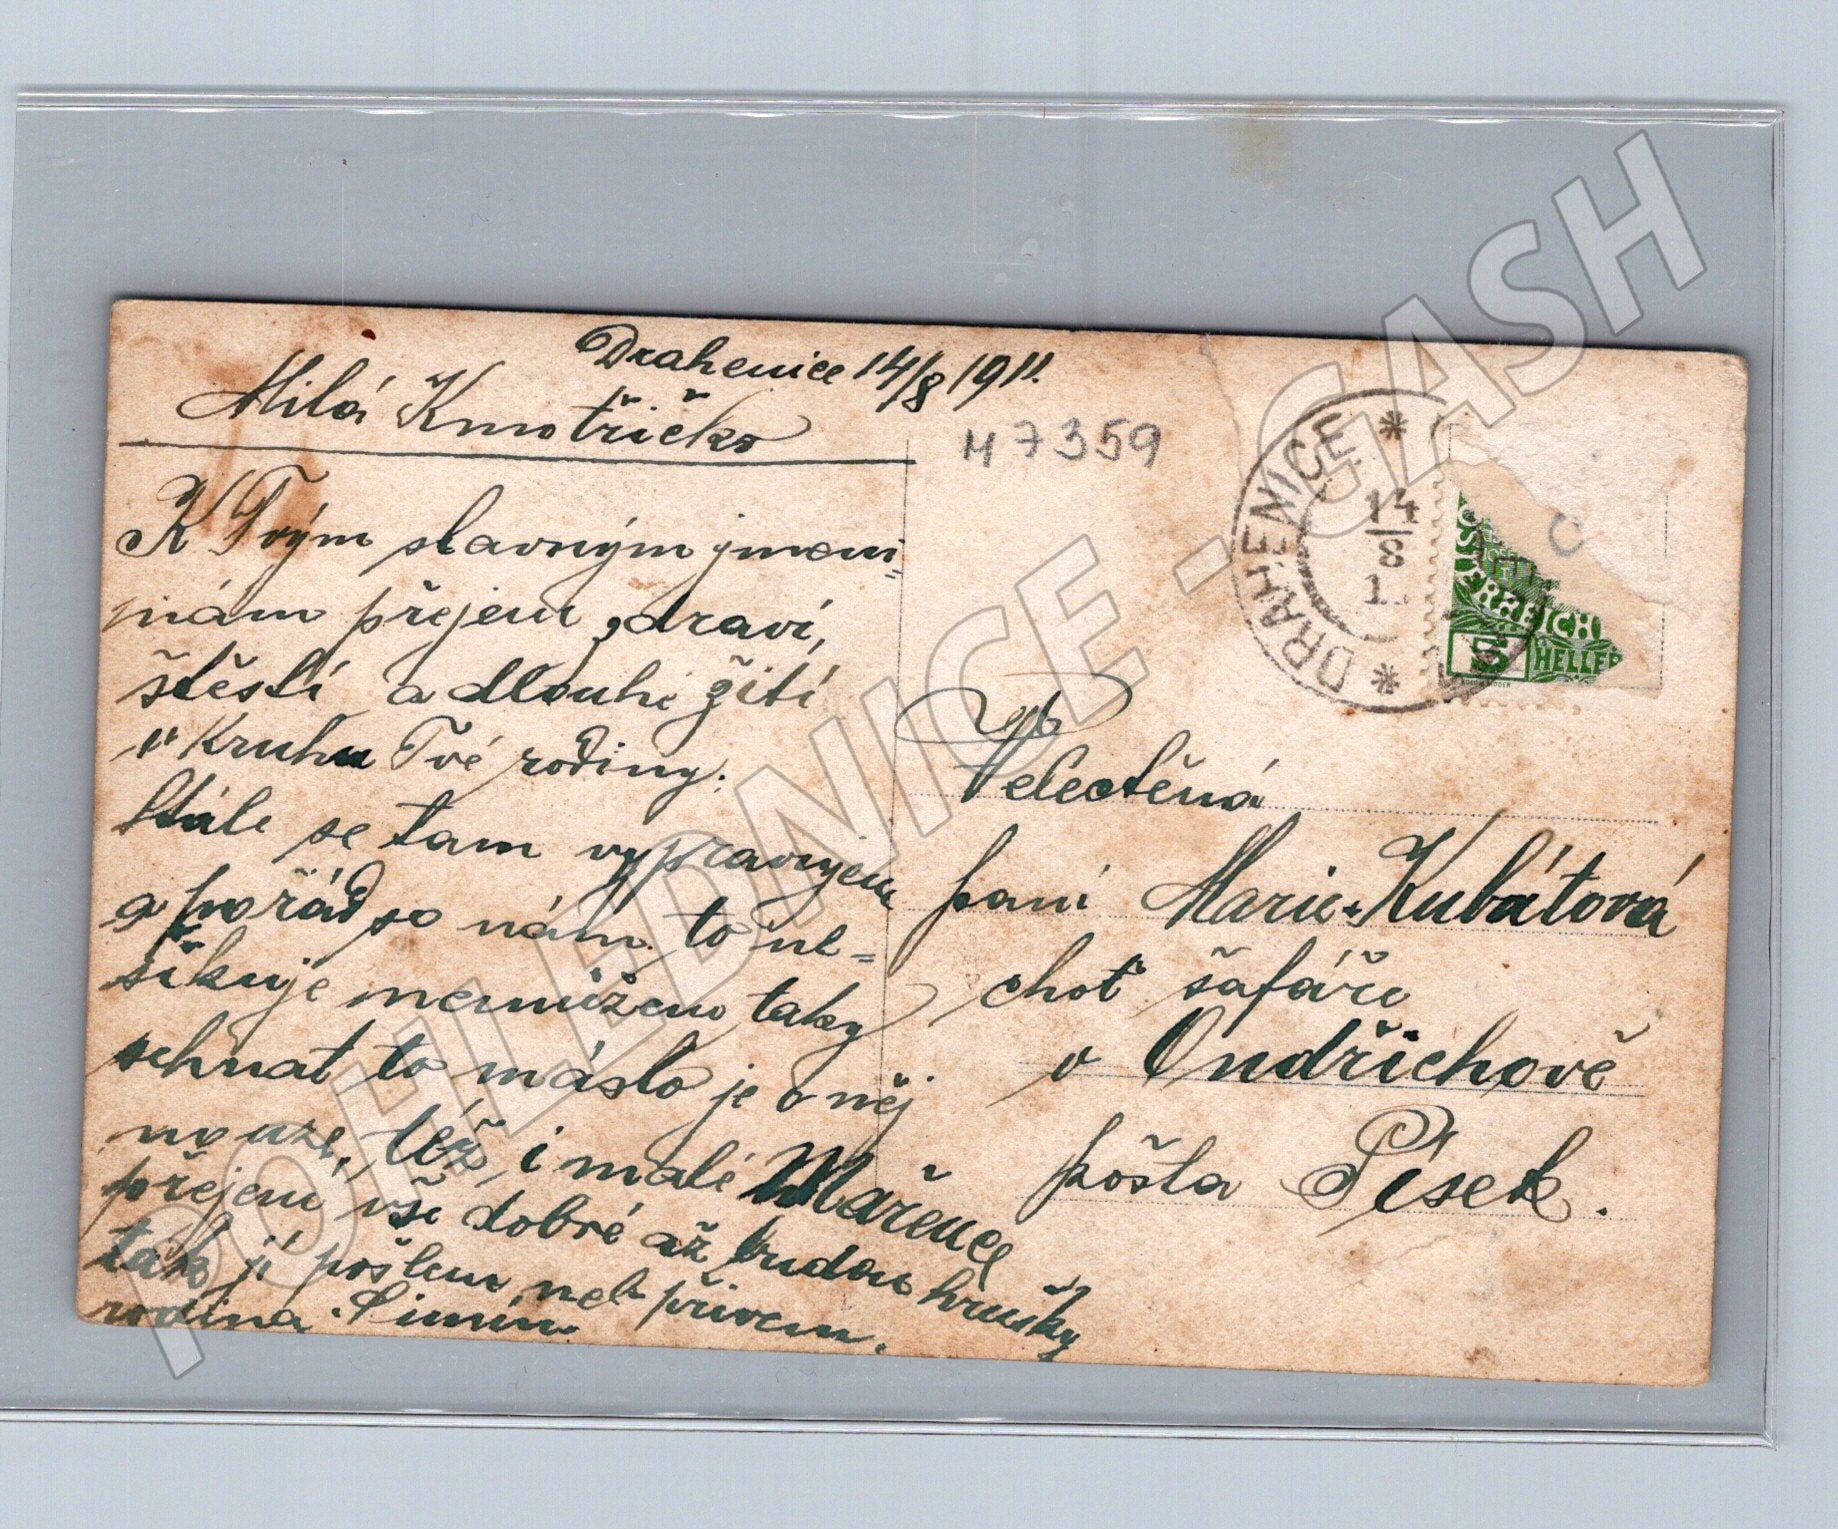 Drahenice 14/8 1911.
Milá Kmotřičko
K Tvým slavným jmeni=
nám přejem zdraví,
štěstí a dlouhé žití
v Kruhu Tvé rodiny.
Stále se tam vypravujem
a pořád so nám to ne=
šikuje nemůžem taky
sehnat to máslo je o něj
nouze, též i malé Mařence
přejem vše dobré až budou hrušky
tak jí pošlem neb přivem.
rodina Šimín
M 7359
* DRAHENICE *
14
8
ÖSTERREICH
5
HELLER
Velectěná
paní Marie Kubátová
choť šafáře
v Ondřichově
pošta Písek.
POHLEDNICE - CASH